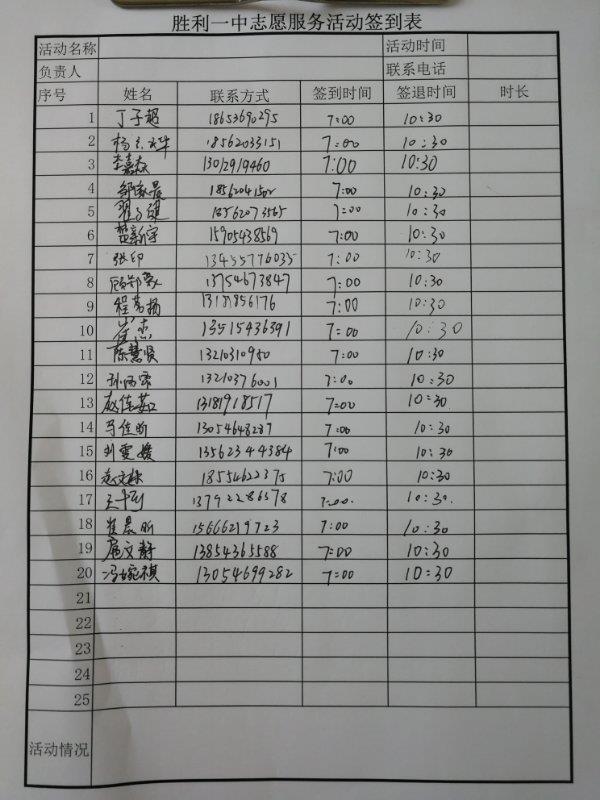 胜利一中志愿服务活动签到表
活动名称 活动时间
负责人 联系电话
序号 姓名 联系方式 签到时间 签退时间 时长
1 丁子超 18653690295 7:00 10:30
2 18562033151 7:00 10:30
3 李嘉森 13012919460 7:00 10:30
4 7:00 10:30
5 18562073565 7:00 10:30
6 楚新宇 15905438569 7:00 10:30
7 张印 13455776035 7:00 10:30
8 13754673847 7:00 10:30
9 程英扬 7:00 10:30
10 崔杰 13515436391 7:00 10:30
11 陈慧贤 7:00 10:30
12 13210376001 7:00 10:30
13 赵佳茹 13181918517 7:00 10:30
14 马佳昕 13054648287 7:00 10:30
15 刘雯媛 13562344384 7:00 10:30
16 18554622375 7:00 10:30
17 13792286578 7:00 10:30
18 崔晨昕 15666219723 7:00 10:30
19 扈文静 13854365588 7:00 10:30
20 冯婉祺 13054699282 7:00 10:30
21
22
23
24
25
活动情况